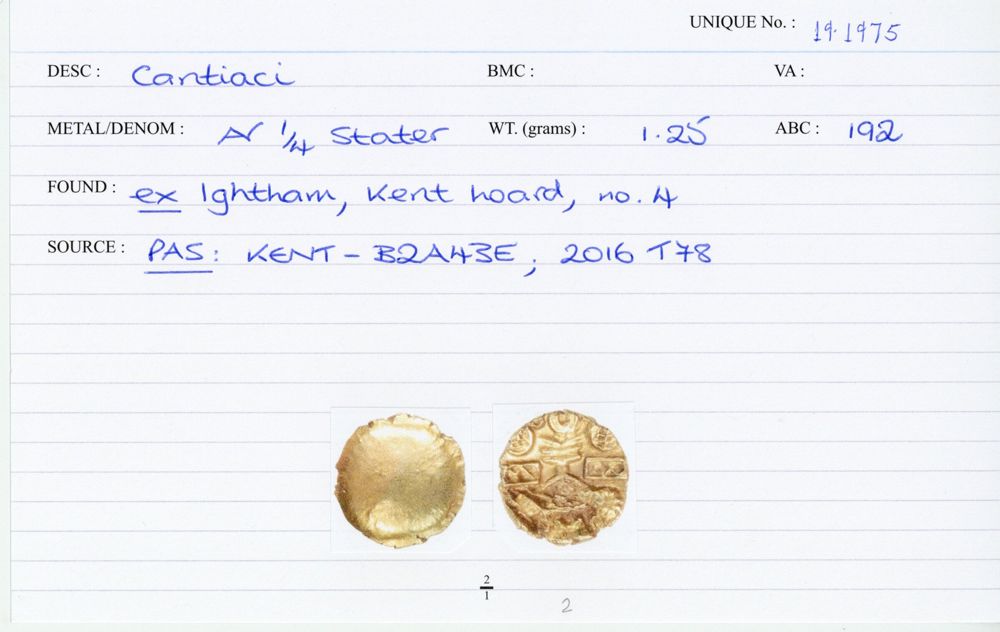 UNIQUE No. : 19.1975
DESC : Cantiaci BMC : VA :
METAL/DENOM : AV 1/4 Stater WT. (grams) : 1.25 ABC : 192
FOUND : ex Ightham, Kent hoard, no. 4
SOURCE : PAS: KENT - B2A43E ; 2016 T78
2
1
2